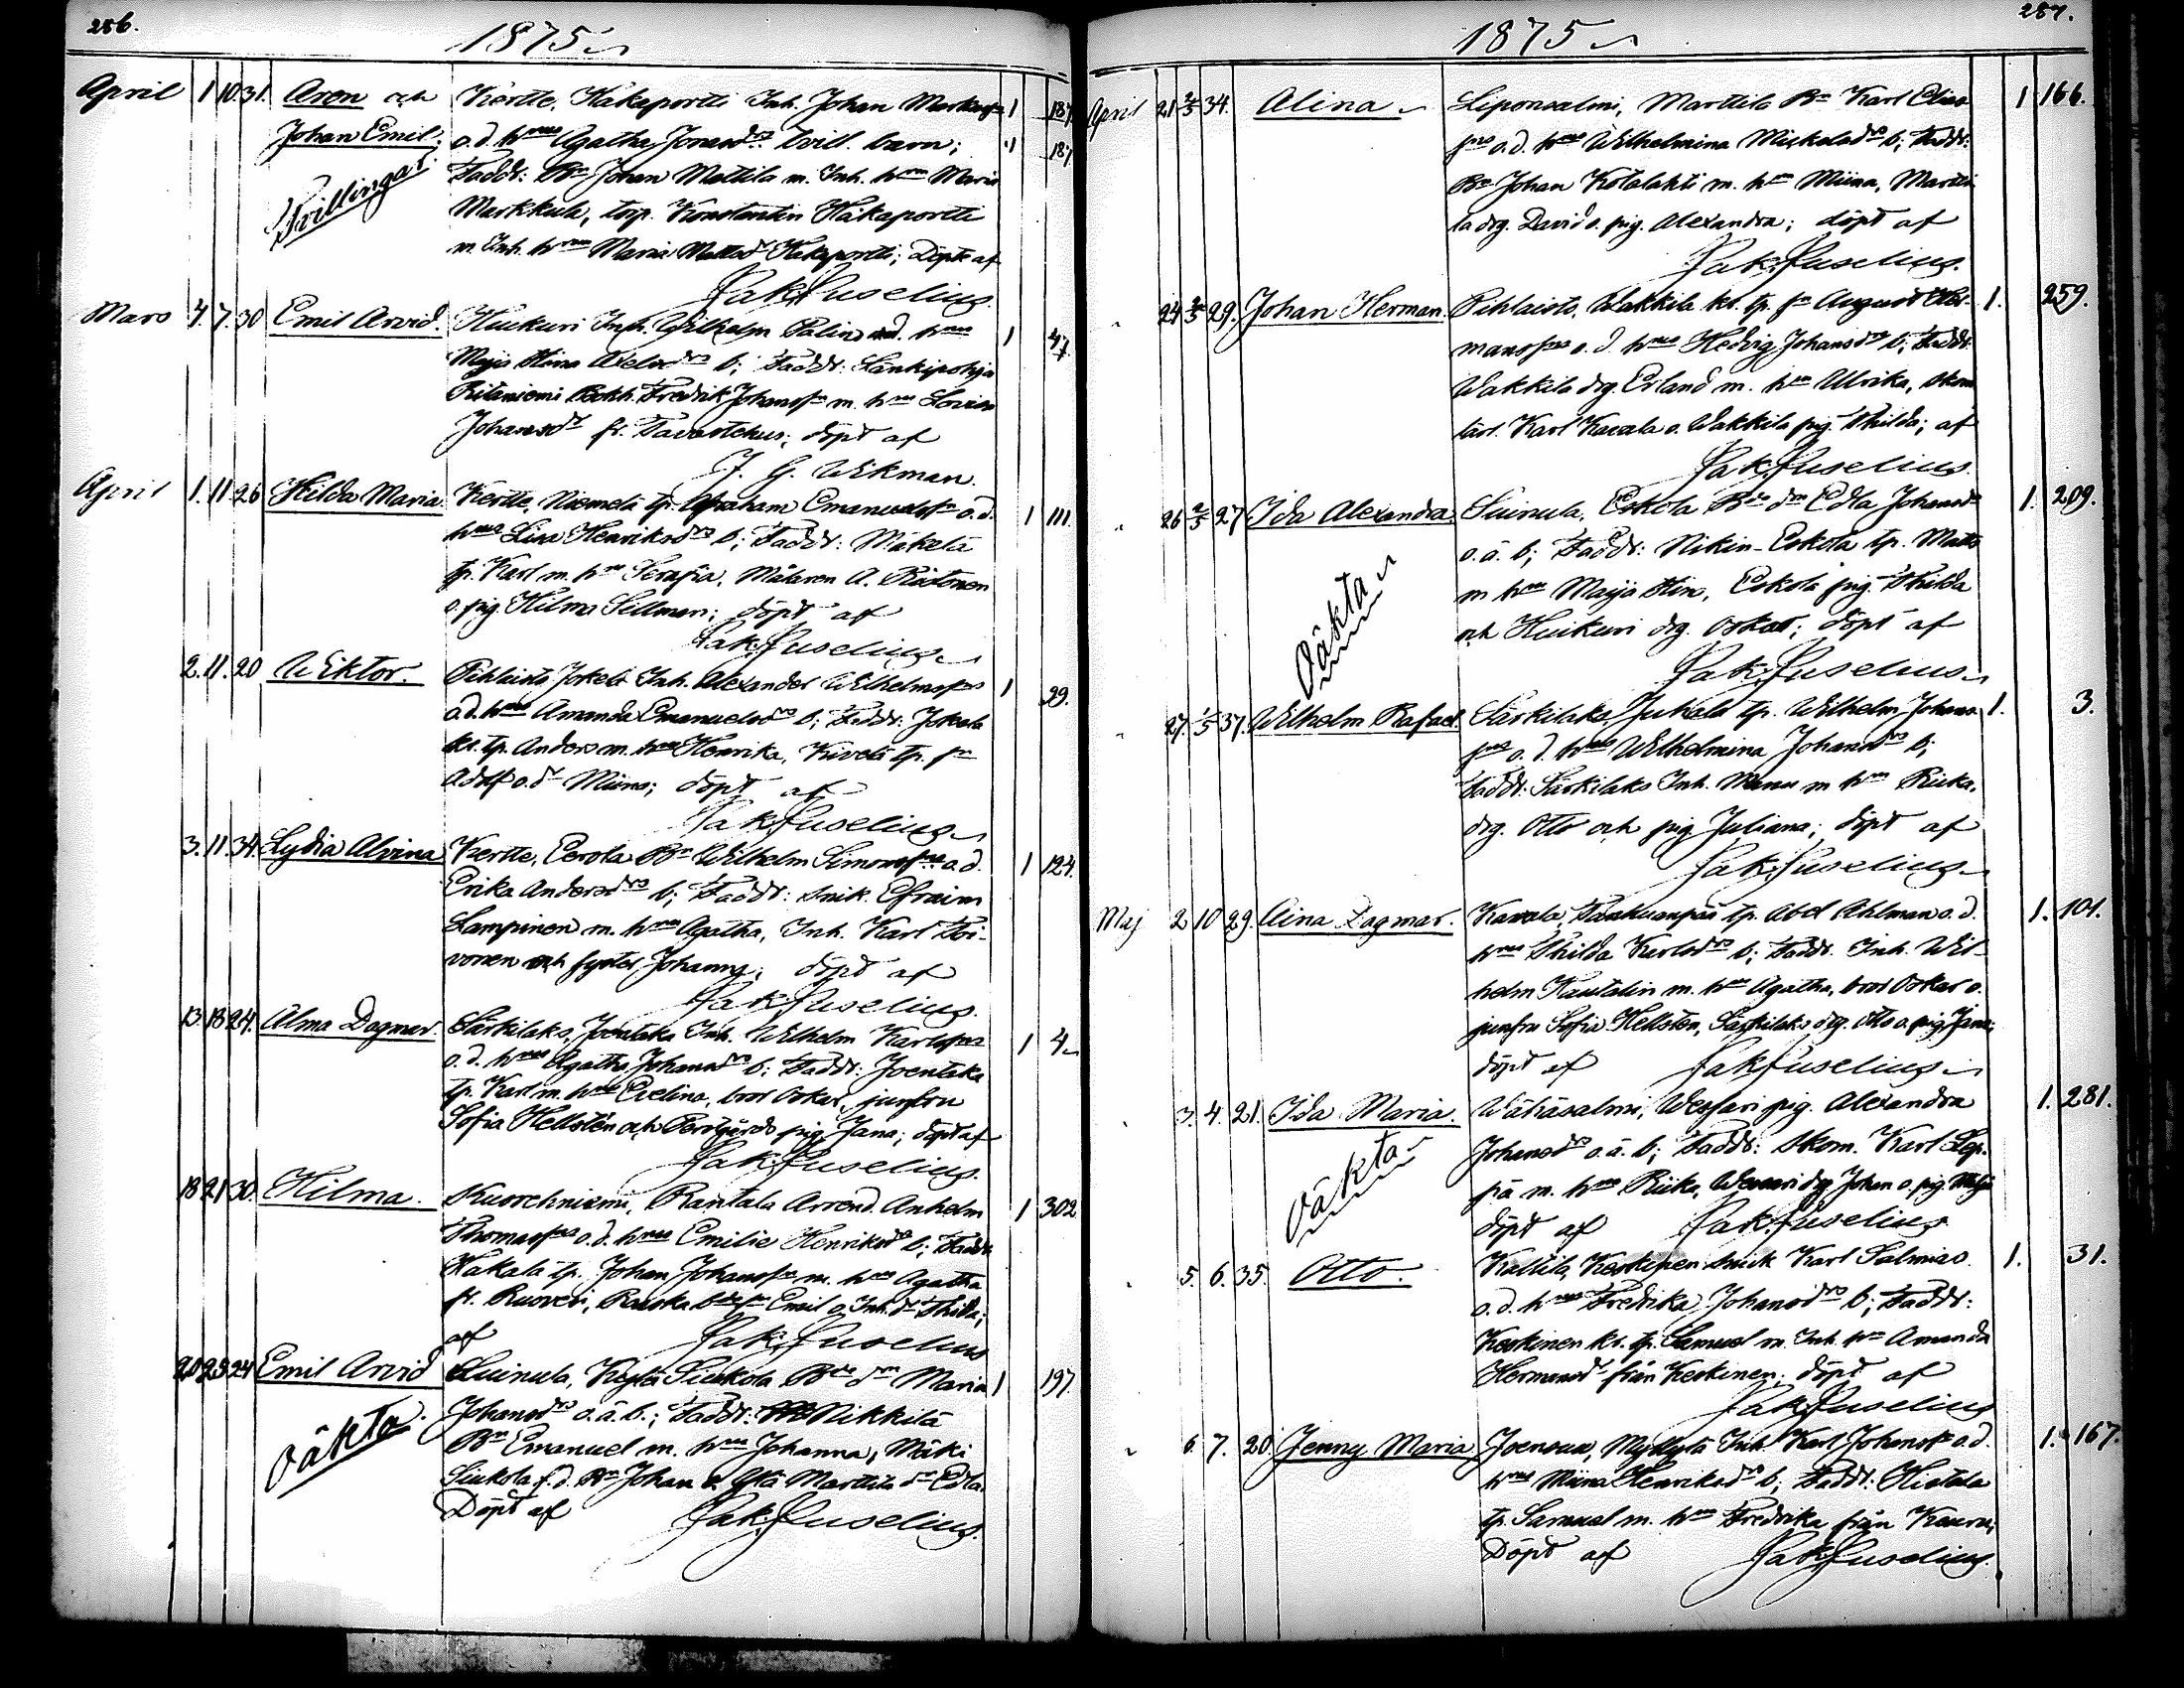 256.
1875
April 1 10 31. Aron och Kertte, Hakaportti Inh. Johan Markuss 1 187.
Johan Emil. o. d. hnes Agatha Jonasdrs tvill. barn; 1 187
Tvillingar. Faddr: Bn Johan Mattila m. Inh. hrun Maria
Markkula, torp. Konstantin Hakaportti
m. Inh. hrun Maria Mattsdr Hakaportti; Döpte af
Jak. Juselius.
Mars 4. 7. 30 Emil Arvid. Huikuri Inh. Wilhelm Palin o. d. hnes 1 47.
Maja Stina Axelsdrs b; Faddr: Länkipohja
Ritaniemi Bokh. Fredrik Johansson m. hru Lovisa
Johansdr fr. Tavastehus; döpt af
J. G. Wikman.
April 1. 11. 26 Hilda Maria. Kertte, Niemelä tp. Abraham Emanuelsn o. d. 1 111
hnes Lisa Henriksdrs b; Faddr: Mäkelä
tp. Karl m. hru Serafia, Målaren A. Rästonen
o. pig. Hilma Sillman; döpt af
Jak. Juselius
2. 11. 20 Wiktor. Pihlaisto Jokela Inh. Alexander Wilhelmssns 1 29.
o. d. hnes Amanda Emanuelsdrs b; Faddr: Jokela
kr. tp. Anders m. hru Henrika, Kivelä tp. sn
Adolf o. dr Miina; döpt af
Jak. Juselius
3. 11. 34. Lydia Alvina Kertte, Eerola Bn Wilhelm Simonssns o. d. 1 124.
Erika Andersdrs b; Faddr: snik. Efraim
Lampinen m. hru Agatha, Inh. Karl Toi-
vonen och syster Johanna; döpt af
Jak. Juselius.
13. 18 24. Alma Dagmar. Särkilaks, Joentaka Inh. Wilhelm Karlssns 1 4
o. d. hnes Agatha Johansdrs b; Faddr: Joentaka
tp. Karl m. hru Evelina, bror Oskar, jungfru
Sofia Hellstén och Persgårds pig. Jana; döpt af
Jak. Juselius.
18 21 30. Hilma. Kuorehniemi, Rantala Arrend. Anhelm 1 302
Thomassns o. d. hnes Emilie Henriksdrs b; Faddr:
Hakala tp. Johan Johansson m. hru Agatha
fr. Ruovesi, Raiska bdesn Emil o. Inh. dr Thilda;
af Jak. Juselius
20 23 24 Emil Arvid Suinula, Kylä Siukola Bde drn Maria 1 197
oäkta. Johansdrs o. ä. b.; Faddr: Nikkilä
Bn Emanuel m. hru Johanna, Mäki
Siukola f. d. Bn Johan o. Ylä Marttila dr Edla.
Döpt af Jak. Juselius.
257.
1875
April 21 2/5 34. Alina Liponsalmi, Marttila Bn Karl Elias 1 166.
sns o. d. hnes Wilhelmina Mickelsdrs b; Faddr:
Bn Johan Kotalahti m. hru Miina, Martti
la drg. David o. pig. Alexandra; döpt af
Jak. Juselius.
" 24 2/5 29. Johan Herman. Pihlaisto, Wakkila kr. tp. sn August Her- 1. 259.
manssns o. d. hnes Hedvig Johansdrs b; Faddr:
Wakkila drg. Erland m. hru Ulrika, skom
lärl. Karl Kavala o. Wakkila pig. Thilda; af
Jak. Juselius
" 26 2/5 27 Ida Alexandra. Suinula, Eskola Bde drn Edla Johansdrs 1. 209.
oäkta o. ä. b; Faddr: Nikin-Eskola tp. Matts
m hru Maija Stin, Eskola pig. Thilda
och Huikuri drg. Oskar; döpt af
Jak. Juselius
" 27. 1/5 37. Wilhelm Rafael. Särkilaks, Juhala tp. Wilhelm Johans 1. 3.
sns o. d. hnes Wilhelmina Johansdrs b;
Faddr: Särkilaks Inh. Manu m hru Riika,
drg. Otto och pig. Juliana; döpt af
Jak. Juselius
Maj 2 10 29. Aina Dagmar. Kavala, Paukunpää tp. Abel Ahlman o. d. 1. 101.
hnes Thilda Karlsdrs b; Faddr. Inh. Wil-
helm Kautalin m. hru Agatha, bror Oskar o.
jungfru Sofia Hellsten, Särkilaks drg. Otto o. pig. Jana;
döpt af Jak Juselius
" 3. 4. 21. Ida Maria. Wähäsalmi, Wessari pig. Alexandra 1. 281.
oäkta Johansdrs o. ä. b; Faddr: skom. Karl Lep-
pä m. hru Riika, Wessari drg. Johan o. pig. Maja
döpt af Jak. Juselius
" 5. 6. 35. Otto. Kallila, Keskinen snick Karl Salmias 1. 31.
o. d. hnes Fredrika Johansdrs b; Faddr:
Keskinen kr. tp. Samuel m. Inh. hr Amanda
Hermansdr från Keskinen; döpt af
Jak. Juselius
" 6. 7. 20. Jenny Maria Joensuu, Myllylä Inh. Karl Johanss o. d. 1. 167.
hnes Miina Henriksdrs b; Faddr: Hietala
tp. Samuel m. hru Fredrika från Keuru;
Döpt af Jak Juselius.